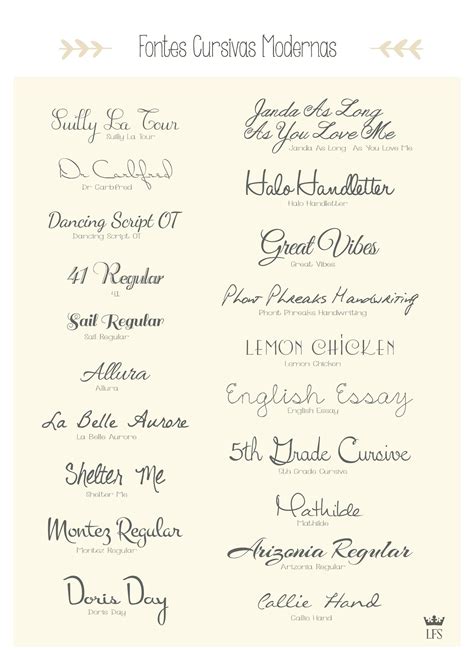 Fontes Cursivas Modernas
Suilly La Tour
Suilly La Tour
Dr Carbfred
Dr Carbfred
Dancing Script OT
Dancing Script OT
41 Regular
41
Sail Regular
Sail Regular
Allura
Allura
La Belle Aurore
La Belle Aurore
Shelter Me
Shelter Me
Montez Regular
Montez Regular
Doris Day
Doris Day
Janda As Long
As You Love Me
Janda As Long As You Love Me
Halo Handletter
Halo Handletter
Great Vibes
Great Vibes
Phont Phreaks Handwriting
Phont Phreaks Handwriting
LEMON CHICKEN
Lemon Chicken
English Essay
English Essay
5th Grade Cursive
5th Grade Cursive
Mathilde
Mathilde
Arizonia Regular
Arizonia Regular
Callie Hand
Callie Hand
LFS